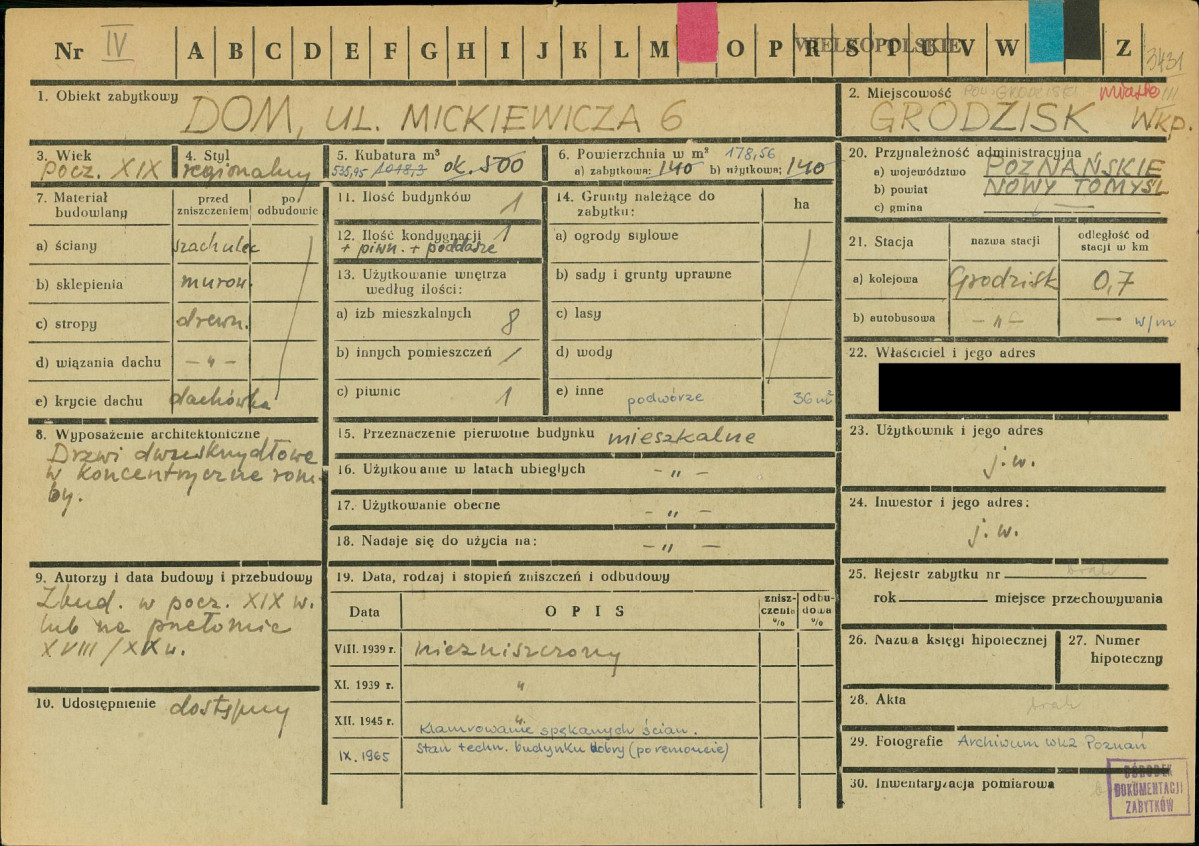 Nr IV A B C D E F G H I J K L M O P R S T U V W Z
WIELKOPOLSKIE
3431
1. Obiekt zabytkowy
DOM, UL. MICKIEWICZA 6
2. Miejscowość POW. GRODZISKI miasto III
GRODZISK WKP.
3. Wiek
Pocz. XIX
4. Styl
regionalny
5. Kubatura m³
535,95 1048,3 ok. 500
6. Powierzchnia w m² 178,56
a) zabytkowa; 140 b) użytkowa; 140
7. Materiał budowlany
przed zniszczeniem
po odbudowie
a) ściany szachulec
b) sklepienia murow.
c) stropy drewn.
d) wiązania dachu – „ –
e) krycie dachu dachówka
8. Wyposażenie architektoniczne
Drzwi dwuskrzydłowe
w koncentryczne rom-
by.
9. Autorzy i data budowy i przebudowy
Zbud. w pocz. XIX w.
lub na przełomie
XVIII/XIX w.
10. Udostępnienie dostępny
11. Ilość budynków 1
12. Ilość kondygnacji 1
+ piwn. + poddasze
13. Użytkowanie wnętrza
według ilości:
a) izb mieszkalnych 8
b) innych pomieszczeń 1
c) piwnic 1
14. Grunty należące do
zabytku:
ha
a) ogrody stylowe
b) sady i grunty uprawne
c) lasy
d) wody
e) inne podwórze 36 m²
15. Przeznaczenie pierwotne budynku mieszkalne
16. Użytkowanie w latach ubiegłych – „ –
17. Użytkowanie obecne – „ –
18. Nadaje się do użycia na: – „ –
19. Data, rodzaj i stopień zniszczeń i odbudowy
Data OPIS znisz-czenia % odbu-dowa %
VIII. 1939 r. niezniszczony
XI. 1939 r. „
XII. 1945 r. „
Klamrowanie spękanych ścian.
IX. 1965 Stan techn. budynku dobry (po remoncie)
20. Przynależność administracyjna
a) województwo POZNAŃSKIE
b) powiat NOWY TOMYŚL
c) gmina —
21. Stacja nazwa stacji odległość od stacji w km
a) kolejowa Grodzisk 0,7
b) autobusowa – „ – — w/m
22. Właściciel i jego adres
23. Użytkownik i jego adres
j.w.
24. Inwestor i jego adres:
j.w.
25. Rejestr zabytku nr brak
rok miejsce przechowywania
26. Nazwa księgi hipotecznej
27. Numer
hipoteczny
28. Akta brak
29. Fotografie Archiwum WKZ Poznań
30. Inwentaryzacja pomiarowa
OŚRODEK
DOKUMENTACJI
ZABYTKÓW